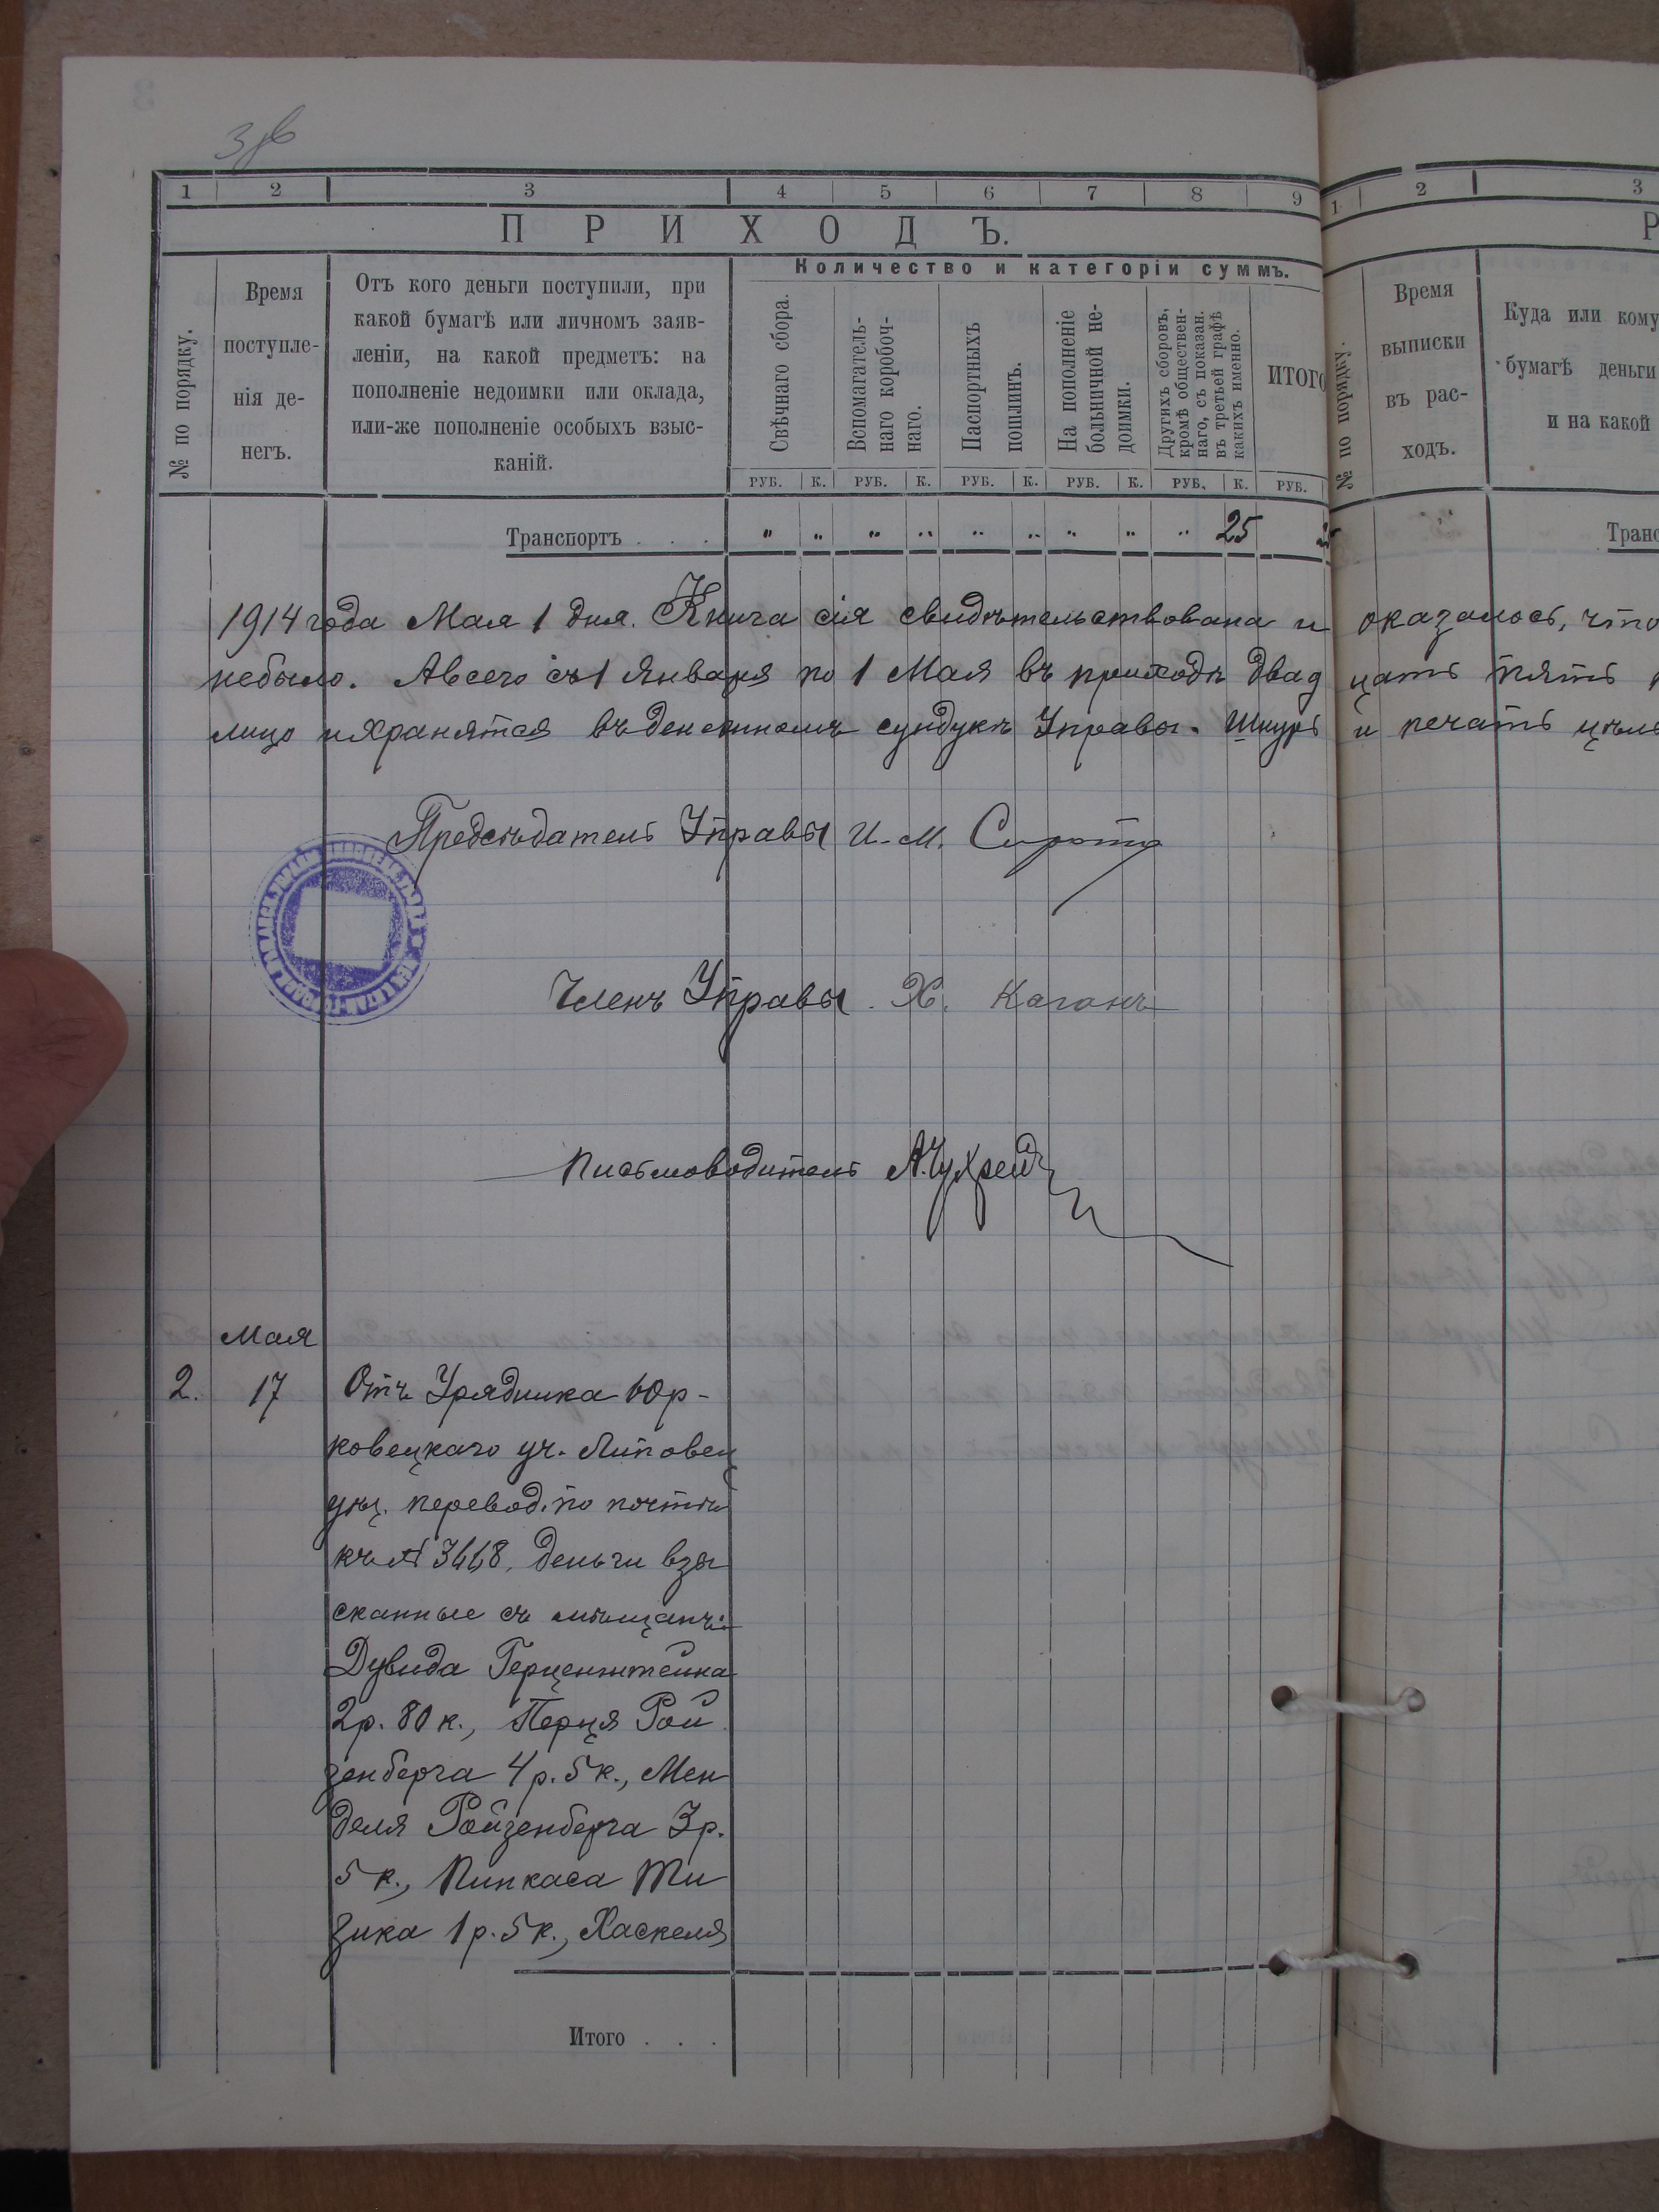 1 2 3 4 5 6 7 8 9
ПРИХОДЪ.
№ по порядку.
Время
поступле-
нія де-
негъ.
Отъ кого деньги поступили, при
какой бумагѣ или личномъ заяв-
леніи, на какой предметъ: на
пополненіе недоимки или оклада,
или-же пополненіе особыхъ взыс-
каній.
Количество и категоріи суммъ.
Свѣчнаго сбора.
Вспомагатель-
наго коробоч-
наго.
Паспортныхъ
пошлинъ.
На пополненіе
больничной не-
доимки.
Другихъ сборовъ,
кромѣ обществен-
наго, съ показан.
въ третьей графѣ
какихъ именно.
ИТОГО
РУБ. К. РУБ. К. РУБ. К. РУБ. К. РУБ. К. РУБ.
Транспортъ . . . " " " " " " " " " 25
1914 года Мая 1 дня. Книга сія свидѣтельствована и оказалось, что
небыло. Авсего съ 1 Января по 1 Мая въ приходѣ двад цать пять
лицо и хранятся въ денежномъ сундукѣ Управы. Шнуръ и печать цѣлы
Предсѣдатель Управы И. М. Сирота
Членъ Управы Х. Каганъ
Письмоводитель
Мая
2. 17 Отъ Урядника Юр-
ковецкаго уч. Липовец
уѣз. перевод. по почтѣ
къ № 3668, деньги взы
сканные съ мѣщанъ:
Дувида Герценштейна
2 р. 80 к., Перця Рой
зенберга 4 р. 5 к., Мен
деля Ройзенберга 3 р.
5 к., Пинкаса Ми
зика 1 р. 5 к., Хаскеля
Итого . . .
1 2 3
Р
№ по порядку.
Время
выписки
въ рас-
ходъ.
Куда или кому
бумагѣ деньги
и на какой
Транс